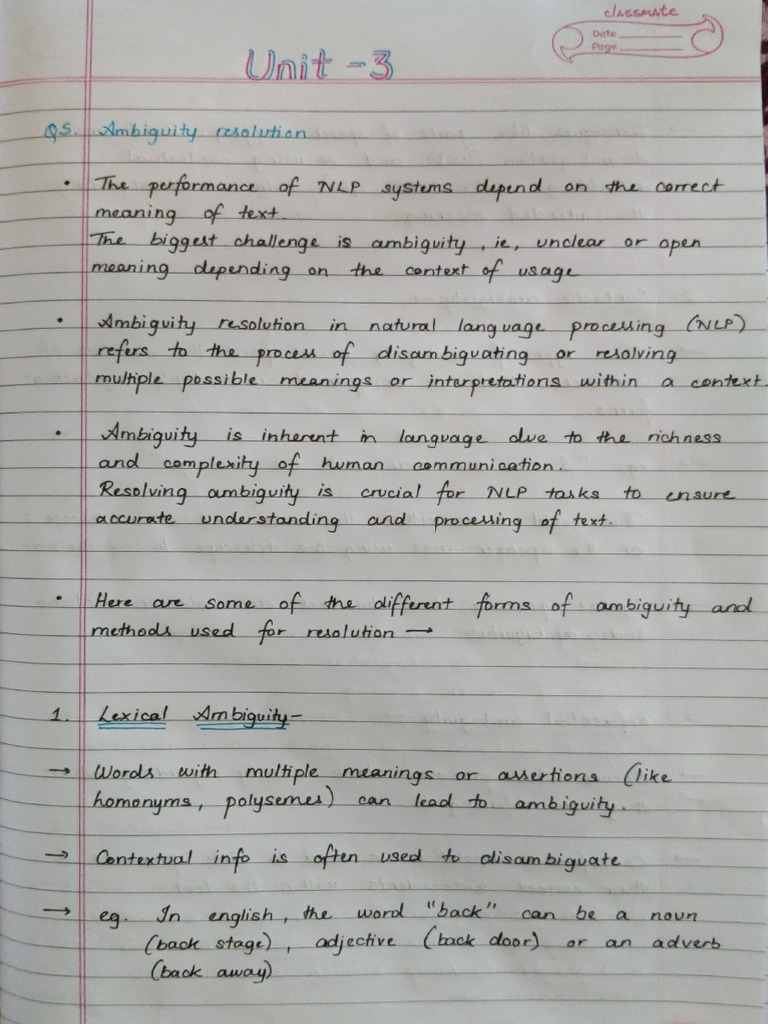 classmate
Date
Page
Unit - 3
Q5. Ambiguity resolution
• The performance of NLP systems depend on the correct
meaning of text.
The biggest challenge is ambiguity, ie, unclear or open
meaning depending on the context of usage
• Ambiguity resolution in natural language processing (NLP)
refers to the process of disambiguating or resolving
multiple possible meanings or interpretations within a context.
• Ambiguity is inherent in language due to the richness
and complexity of human communication.
Resolving ambiguity is crucial for NLP tasks to ensure
accurate understanding and processing of text.
• Here are some of the different forms of ambiguity and
methods used for resolution →
1. Lexical Ambiguity-
→ Words with multiple meanings or assertions (like
homonyms, polysemes) can lead to ambiguity.
→ Contextual info is often used to disambiguate
→ eg. In english, the word "back" can be a noun
(back stage), adjective (back door) or an adverb
(back away)